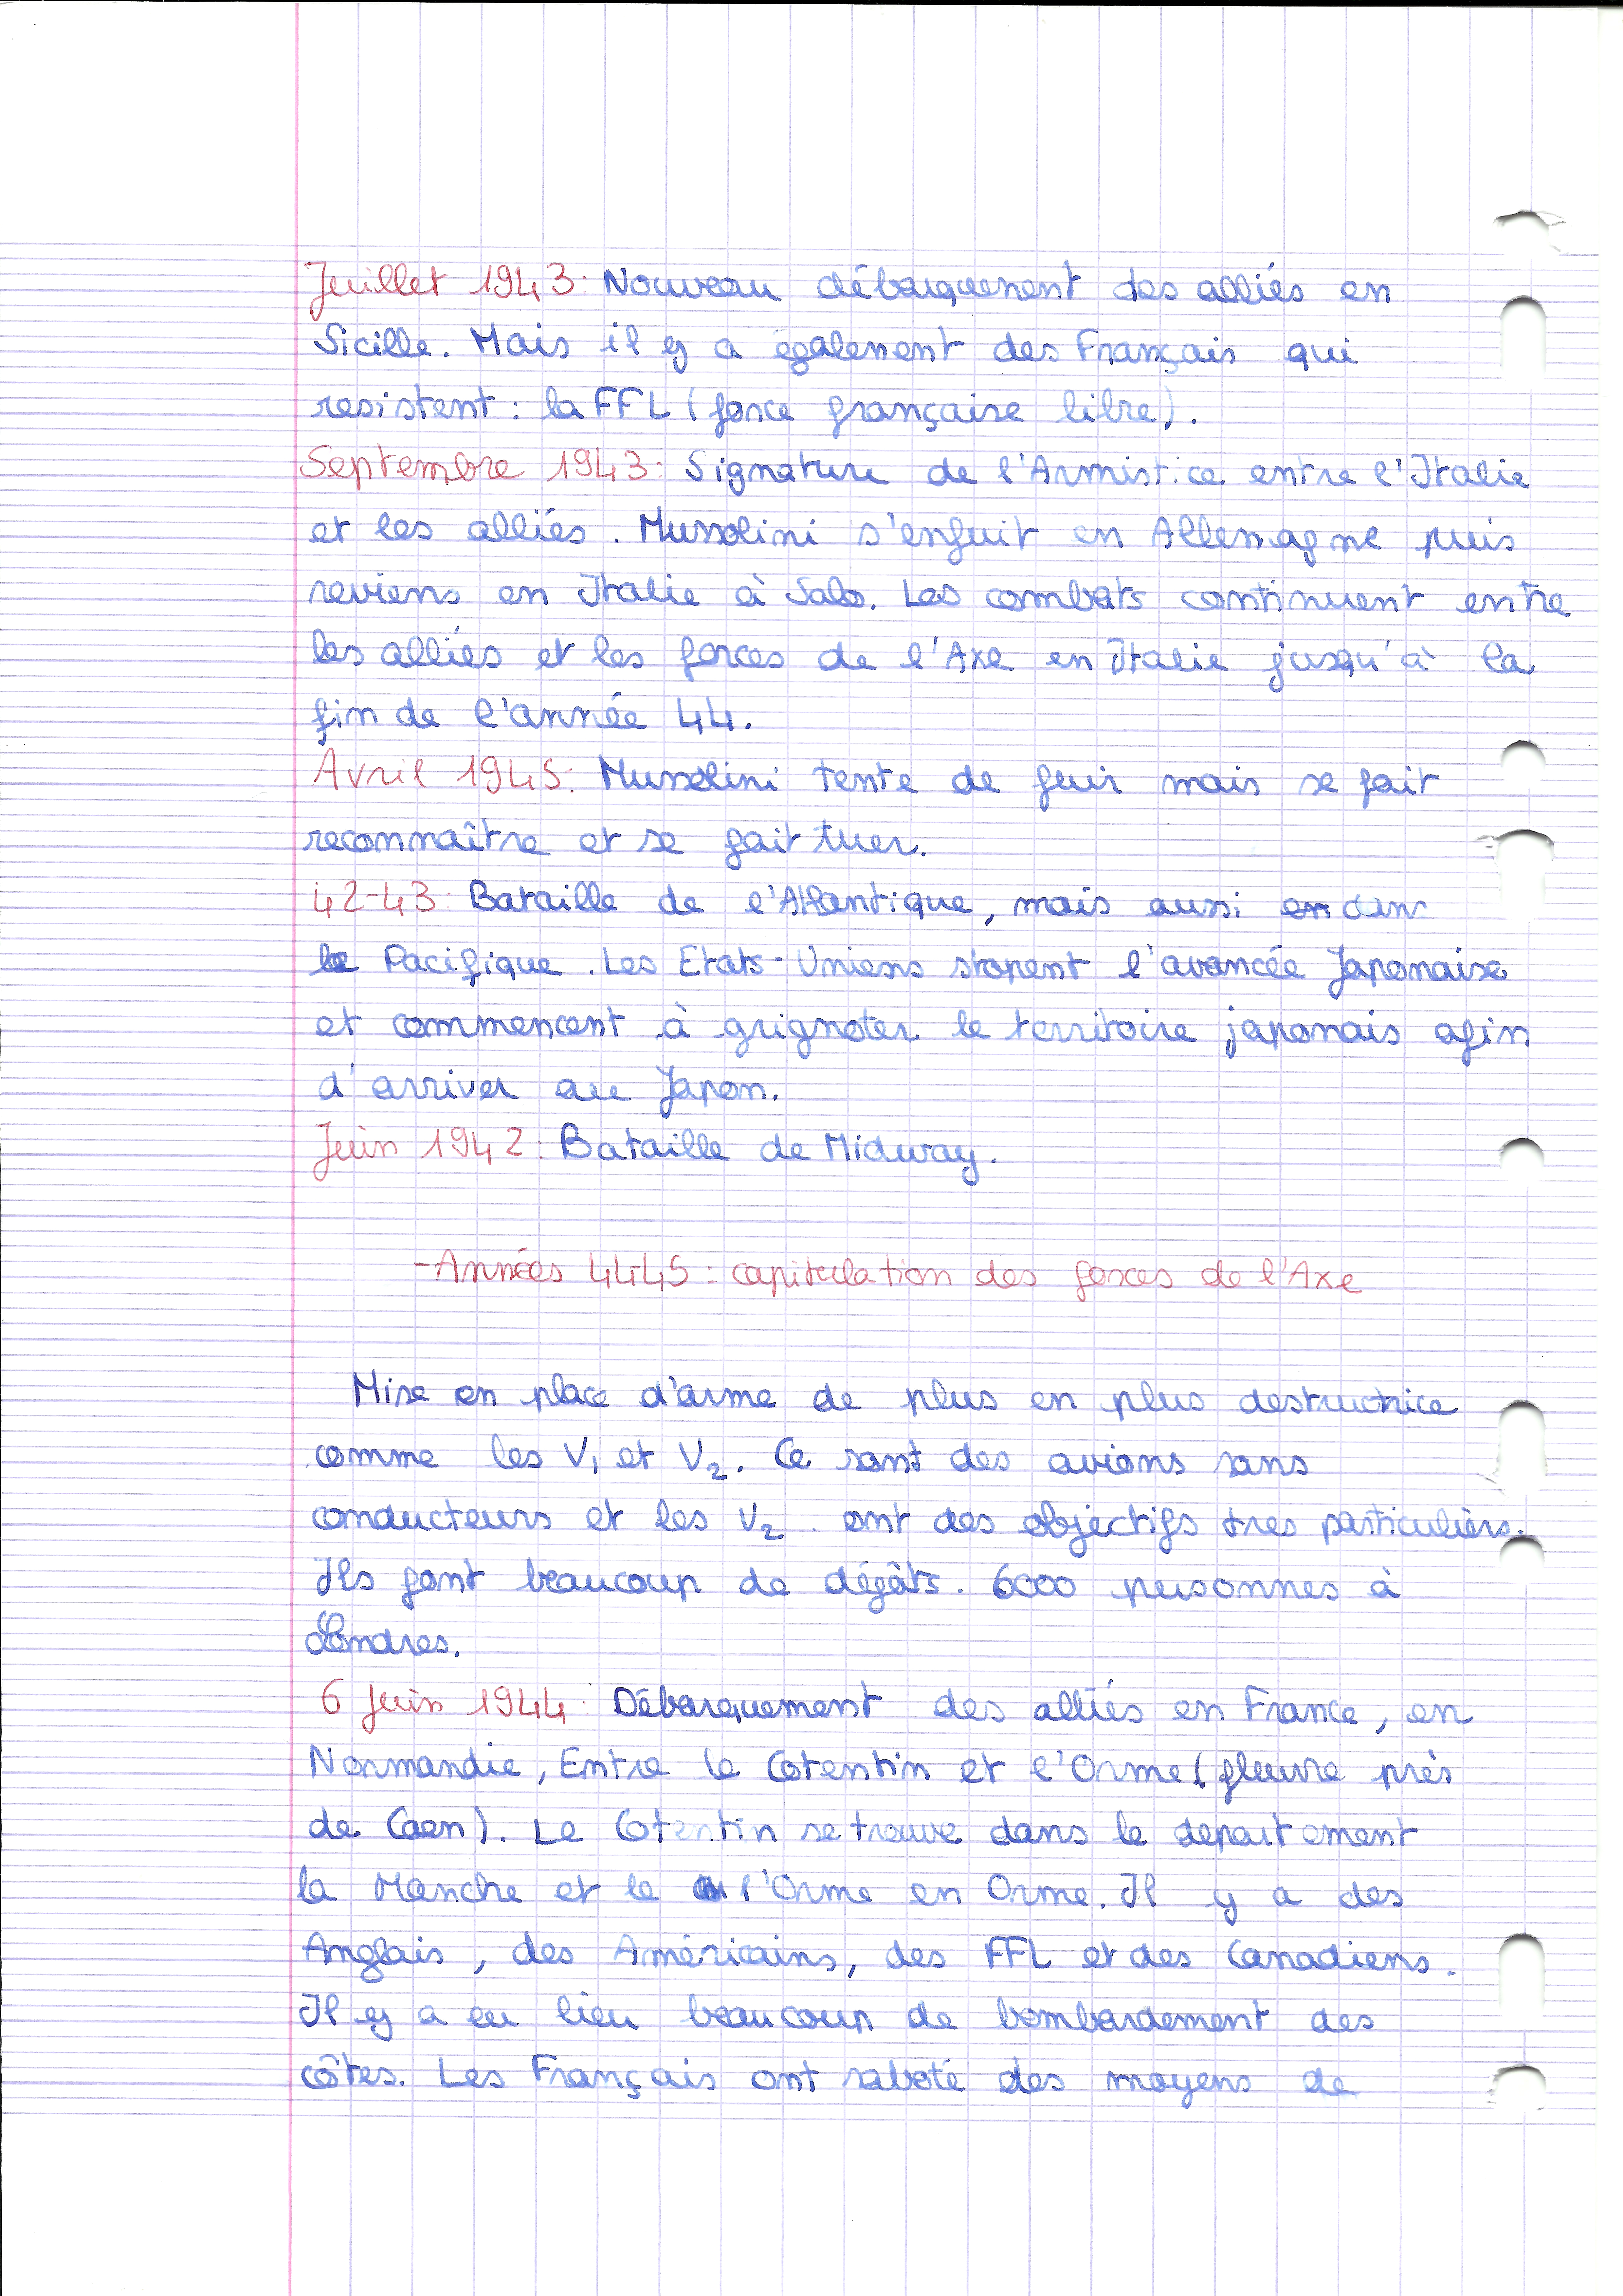 Juillet 1943: Nouveau débarquement des alliés en
Sicille. Mais il y a également des Français qui
resistent : la FFL (force française libre).
Septembre 1943: Signature de l'Armistice entre l'Italie
et les alliés. Mussolini s'enfuit en Allemagne puis
reviens en Italie à Salo. Les combats continuent entre
les alliés et les forces de l'Axe en Italie jusqu'à la
fin de l'année 44.
Avril 1945: Mussolini tente de fuir mais se fait
reconnaître et se fait tuer.
42-43: Bataille de l'Atlantique, mais aussi en dans
le Pacifique. Les Etats-Uniens stopent l'avancée Japonaise
et commencent à grignoter le territoire japonais afin
d'arriver au Japon.
Juin 1942: Bataille de Midway.
-Années 44-45: capitulation des forces de l'Axe
Mise en place d'arme de plus en plus destructrice
comme les V1 et V2. Ce sont des avions sans
conducteurs et les V2 ont des objectifs tres particuliers.
Ils font beaucoup de dégâts. 6000 personnes à
Londres.
6 Juin 1944: Débarquement des alliés en France, en
Normandie, Entre le Cotentin et l'Orme (fleuve près
de Caen). Le Cotentin se trouve dans le departement
la Manche et le l'Orme en Orme. Il y a des
Anglais, des Américains, des FFL et des Canadiens.
Il y a eu lieu beaucoup de bombardement des
côtes. Les Français ont saboté des moyens de